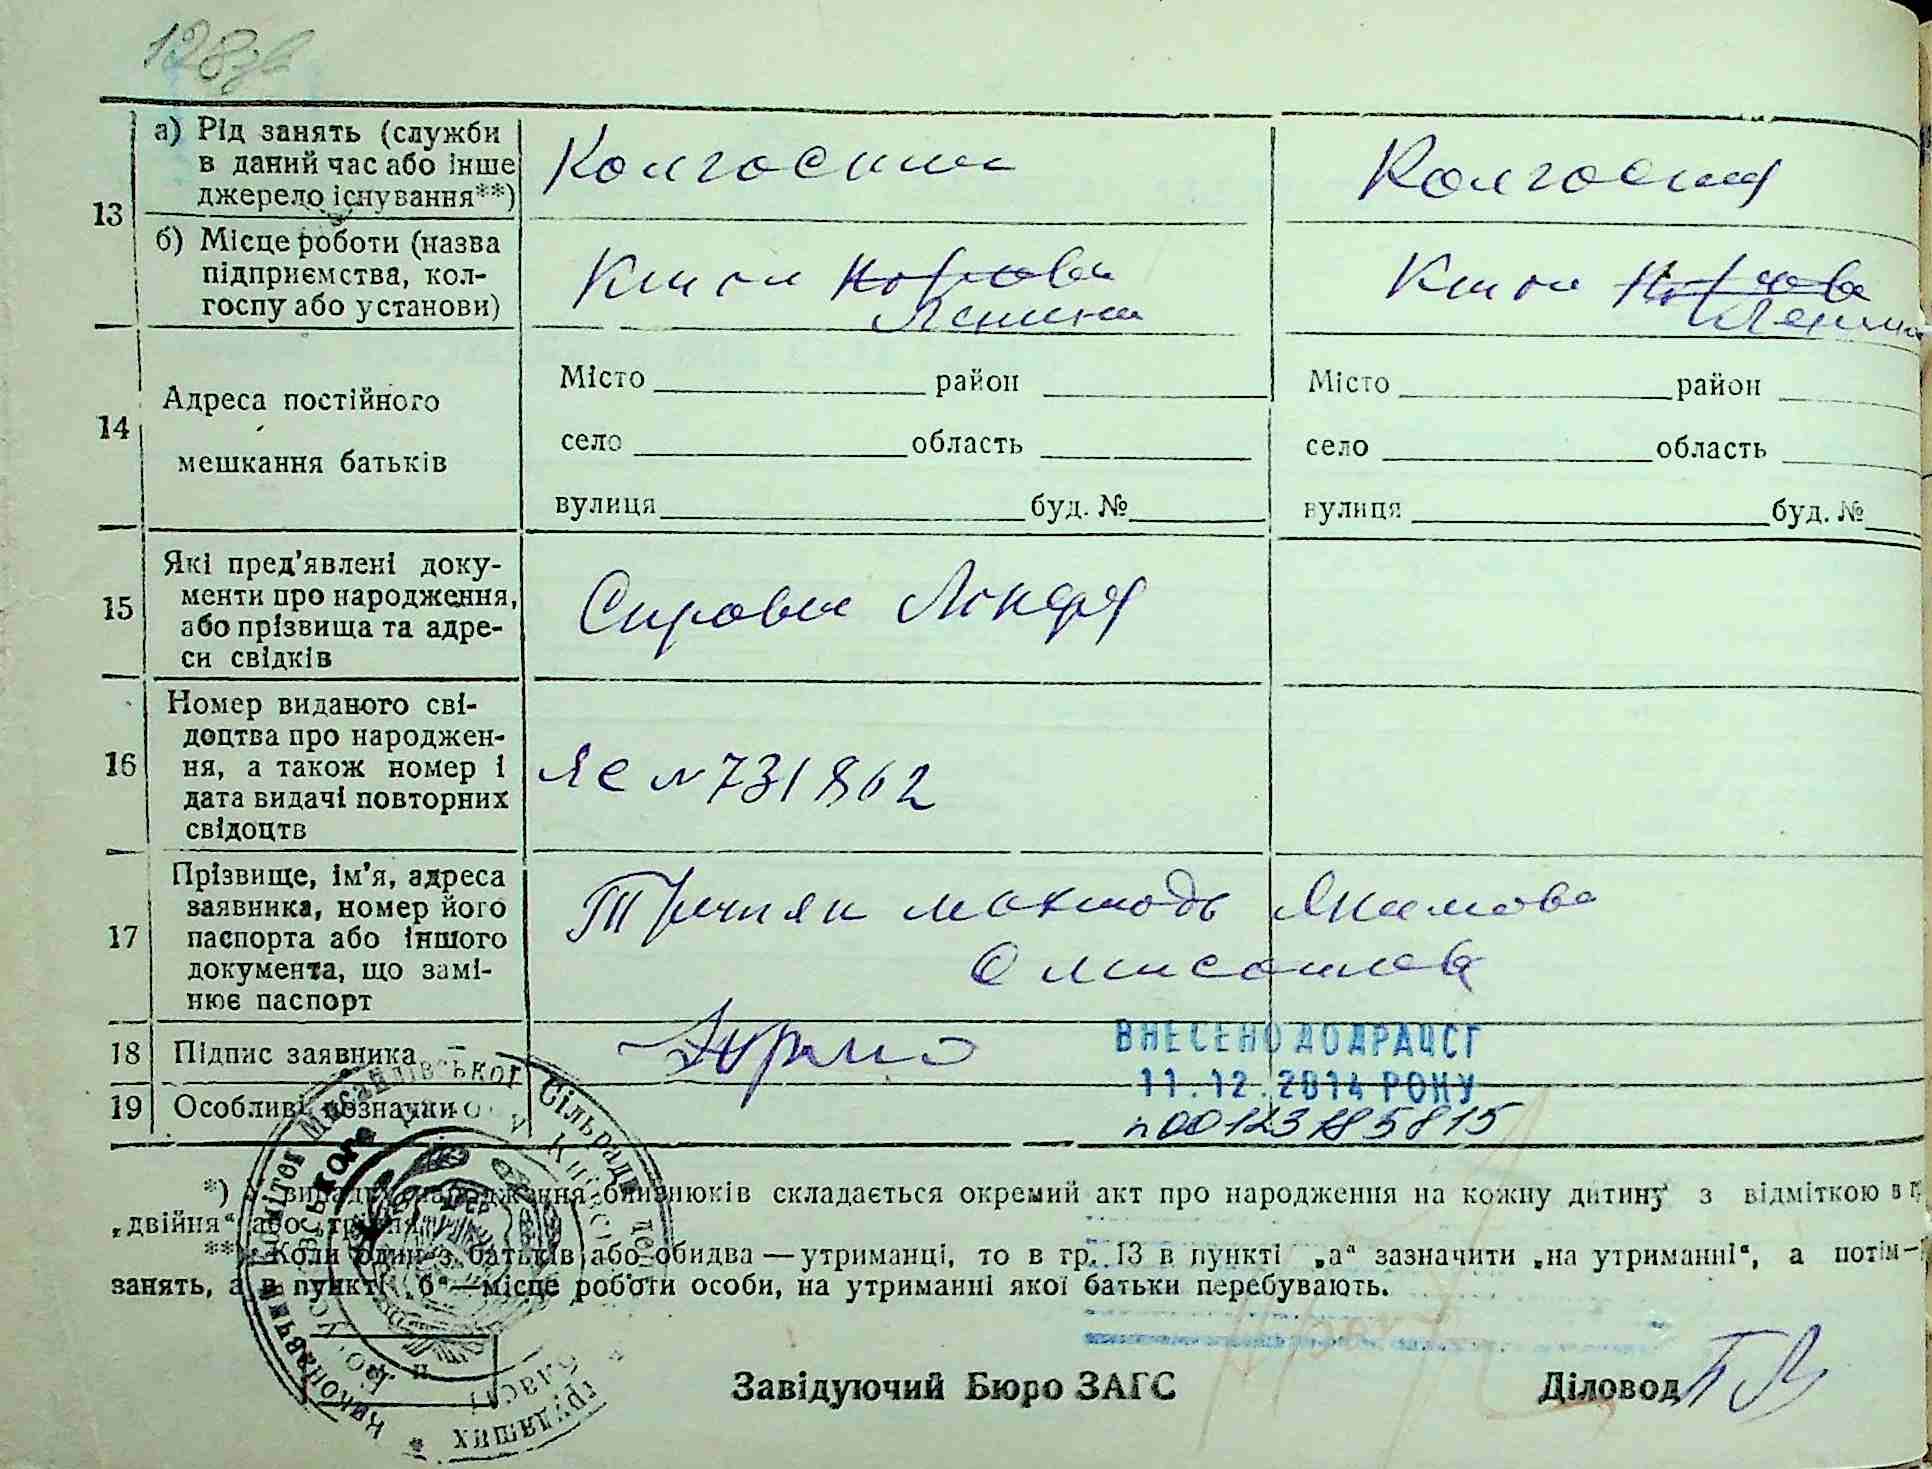 128зв
13
а) Рід занять (служби
в даний час або інше
джерело існування**)
Колгоспник
Колгоспн
б) Місце роботи (назва
підприємства, кол-
госпу або установи)
Леніна
Леніна
14
Адреса постійного
мешкання батьків
Місто район
село область
вулиця буд. №
Місто район
село область
вулиця буд. №
15
Які пред'явлені доку-
менти про народження,
або прізвища та адре-
си свідків
Справка
16
Номер виданого сві-
доцтва про народжен-
ня, а також номер і
дата видачі повторних
свідоцтв
ЯС №731862
17
Прізвище, ім'я, адреса
заявника, номер його
паспорта або іншого
документа, що замі-
нює паспорт
Якимова
18 Підпис заявника
19 Особливі позначки
ВНЕСЕНО ДО ДРАЦСГ
11.12.2014 РОКУ
n00123185815
*) У випадку народження близнюків складається окремий акт про народження на кожну дитину з відміткою в г
„двійня" або „трійня"
**) Коли один з батьків або обидва — утриманці, то в гр. 13 в пункті „а" зазначити „на утриманні", а потім —
занять, а в пункті „б" — місце роботи особи, на утриманні якої батьки перебувають.
Виконавчий Комітет Мусаїлівської Сільради депутатів трудящих
Завідуючий Бюро ЗАГС
Діловод